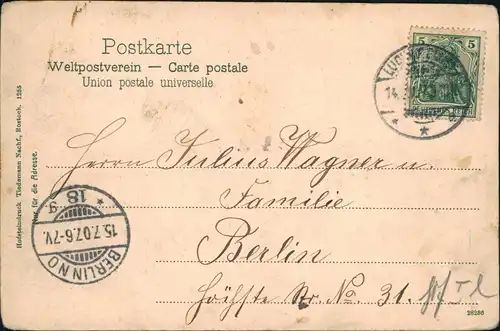 Postkarte
Weltpostverein — Carte postale
Union postale universelle
5 5
14.
Herrn Julius Wagner u.
Familie
Berlin
Höchste Str. No. 31.
BERLIN NO
15.7.07. 6-7V.
* 18 g
Nur für die Adresse.
Hofsteindruck Tiedemann Nachf., Rostock. 1255
26286